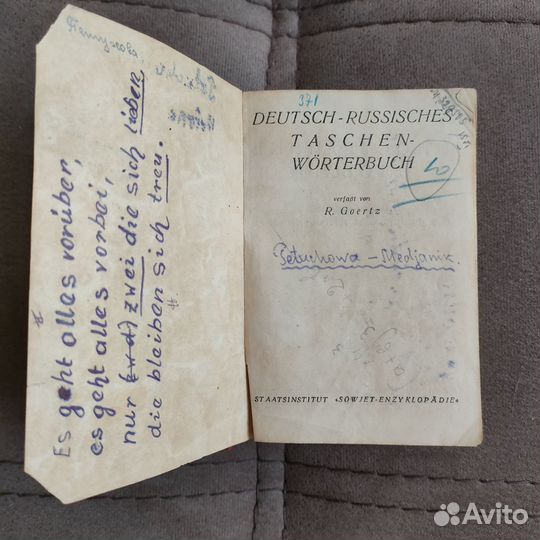 Петухова
Es geht alles vorüber,
es geht alles vorbei,
nur (zwei) zwei die sich lieben,
die bleiben sich treu.
371
DEUTSCH-RUSSISCHES
TASCHEN-
WÖRTERBUCH
10
verfaßt von
R. Goertz
Petuchowa – Medjanik.
STAATSINSTITUT «SOWJET-ENZYKLOPÄDIE»
Avito